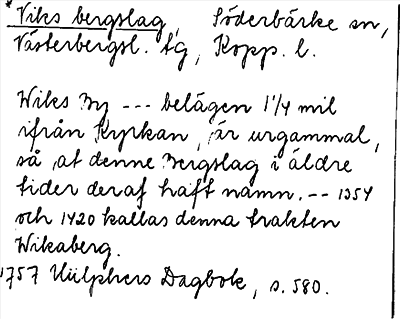 Viks bergslag, Söderbärke sn,
Västerbergsl. tg, Kopp. l.
Wiks By --- belägen 1 1/4 mil
ifrån Kyrkan, är urgammal,
så at denne Bergslag i äldre
tider deraf haft namn. -- 1354
och 1420 kallas denna trakten
Wikaberg.
1757 Hülphers Dagbok, s. 580.